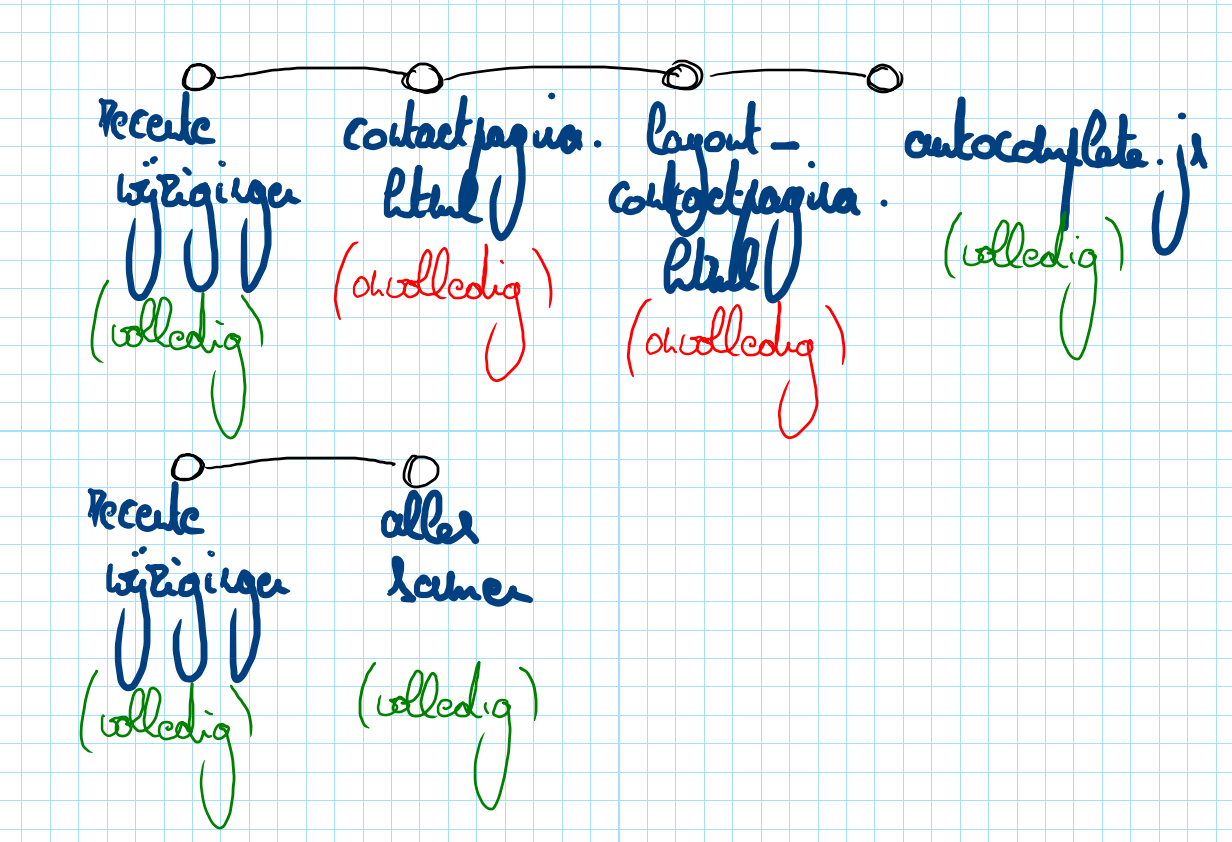 recente
wijzigingen
(volledig)
contactpagina.
html
(onvolledig)
layout-
contactpagina.
html
(onvolledig)
autocomplete.js
(volledig)
recente
wijzigingen
(volledig)
alles
samen
(volledig)